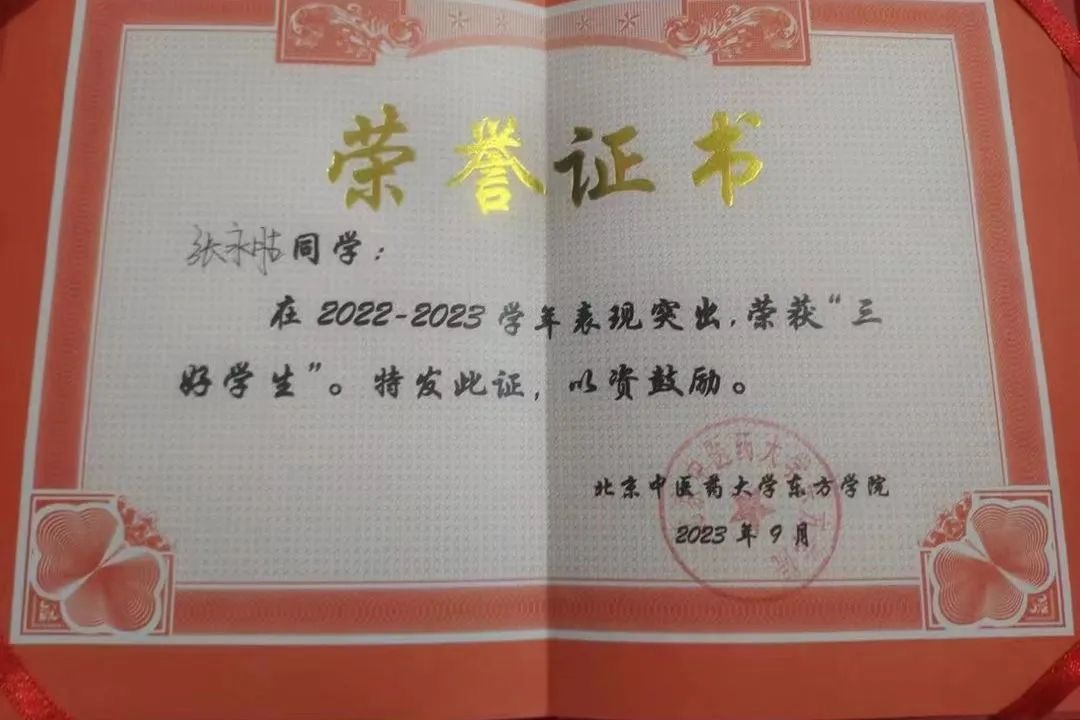 荣誉证书
张永胜同学：
在2022-2023学年表现突出,荣获“三
好学生”。特发此证，以资鼓励。
北京中医药大学东方学院
2023年9月